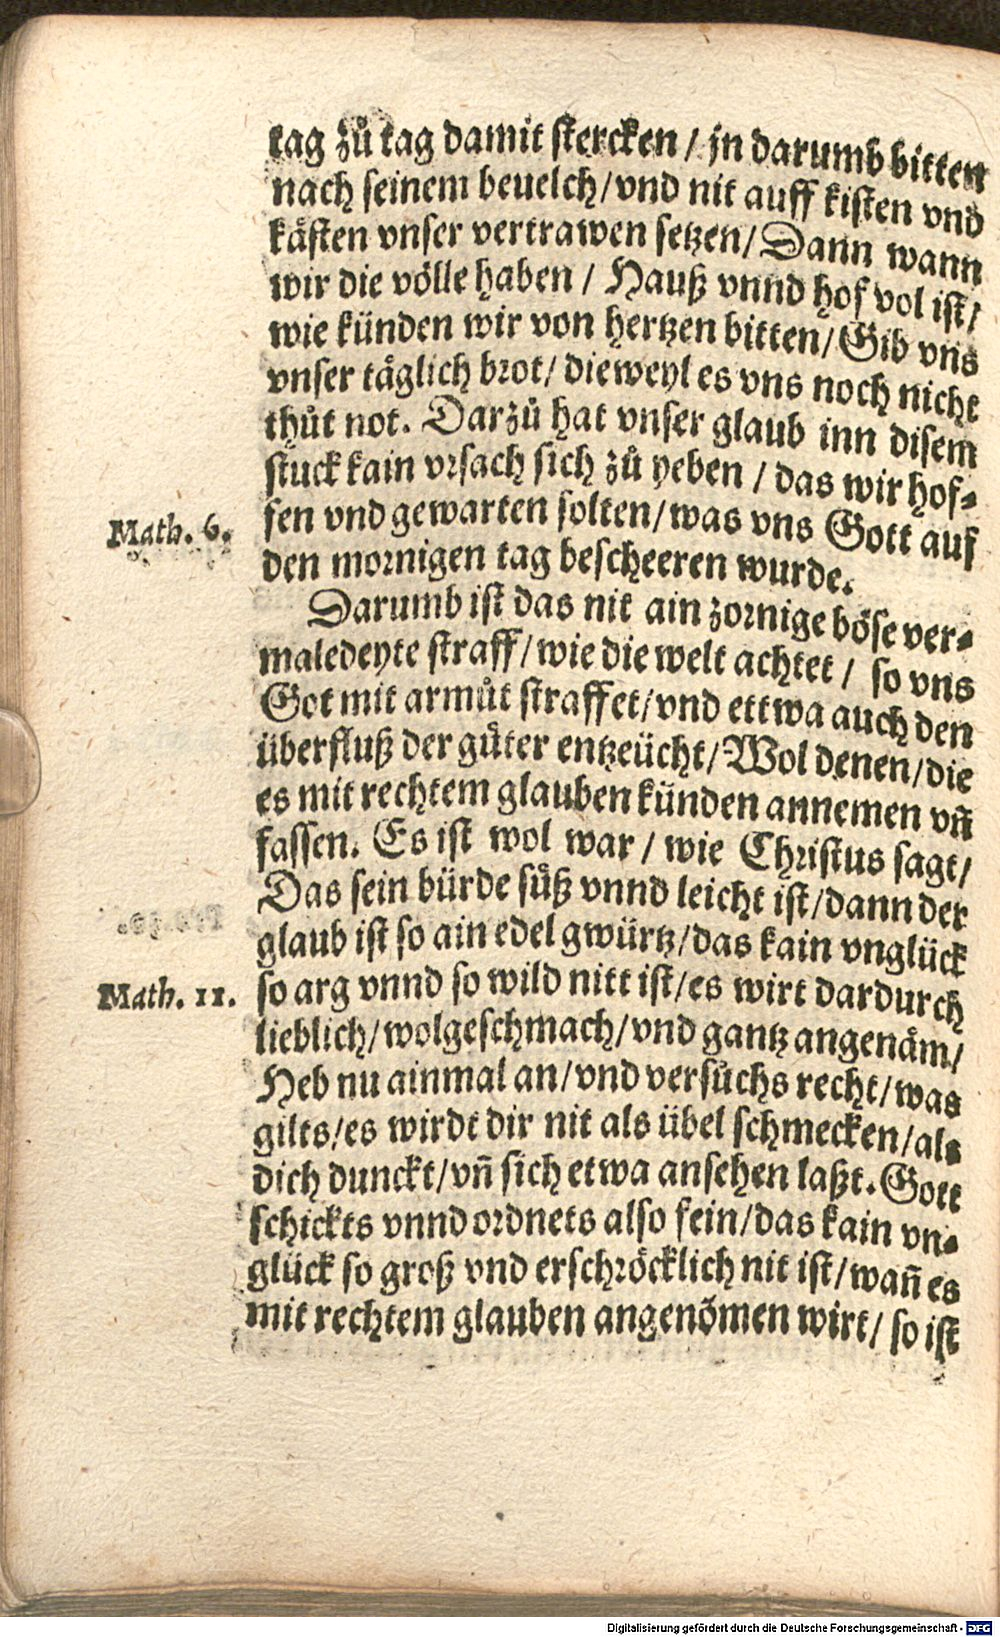 tag zů tag damit stercken / jn darumb bitten
nach seinem beuelch / vnd nit auff kisten vnd
kåsten vnser vertrawen setzen / Dann wann
wir die völle haben / Hauß vnnd hof vol ist /
wie künden wir von hertzen bitten / Gib vns
vnser täglich brot / dieweyl es vns noch nicht
thůt not. Darzů hat vnser glaub inn disem
stuck kain vrsach sich zů yeben / das wir hof-
fen vnd gewarten solten / was vns Gott auf
Math. 6.
den mornigen tag bescheeren wurde.
Darumb ist das nit ain zornige böse ver-
maledeyte straff / wie die welt achtet / so vns
Got mit armůt straffet / vnd ettwa auch den
überfluß der gůter entzeücht / Wol denen / die
es mit rechtem glauben künden annemen vñ
fassen. Es ist wol war / wie Christus sagt /
Das sein bürde süß vnnd leicht ist / dann der
glaub ist so ain edel gwürtz / das kain vnglück
Math. 11.
so arg vnnd so wild nitt ist / es wirt dardurch
lieblich / wolgeschmach / vnd gantz angenäm /
Heb nu ainmal an / vnd versůchs recht / was
gilts / es wirdt dir nit als übel schmecken / als
dich dunckt / vñ sich etwa ansehen laßt. Gott
schickts vnnd ordnets also fein / das kain vn-
glück so groß vnd erschröcklich nit ist / wañ es
mit rechtem glauben angenõmen wirt / so ist
Digitalisierung gefördert durch die Deutsche Forschungsgemeinschaft - DFG